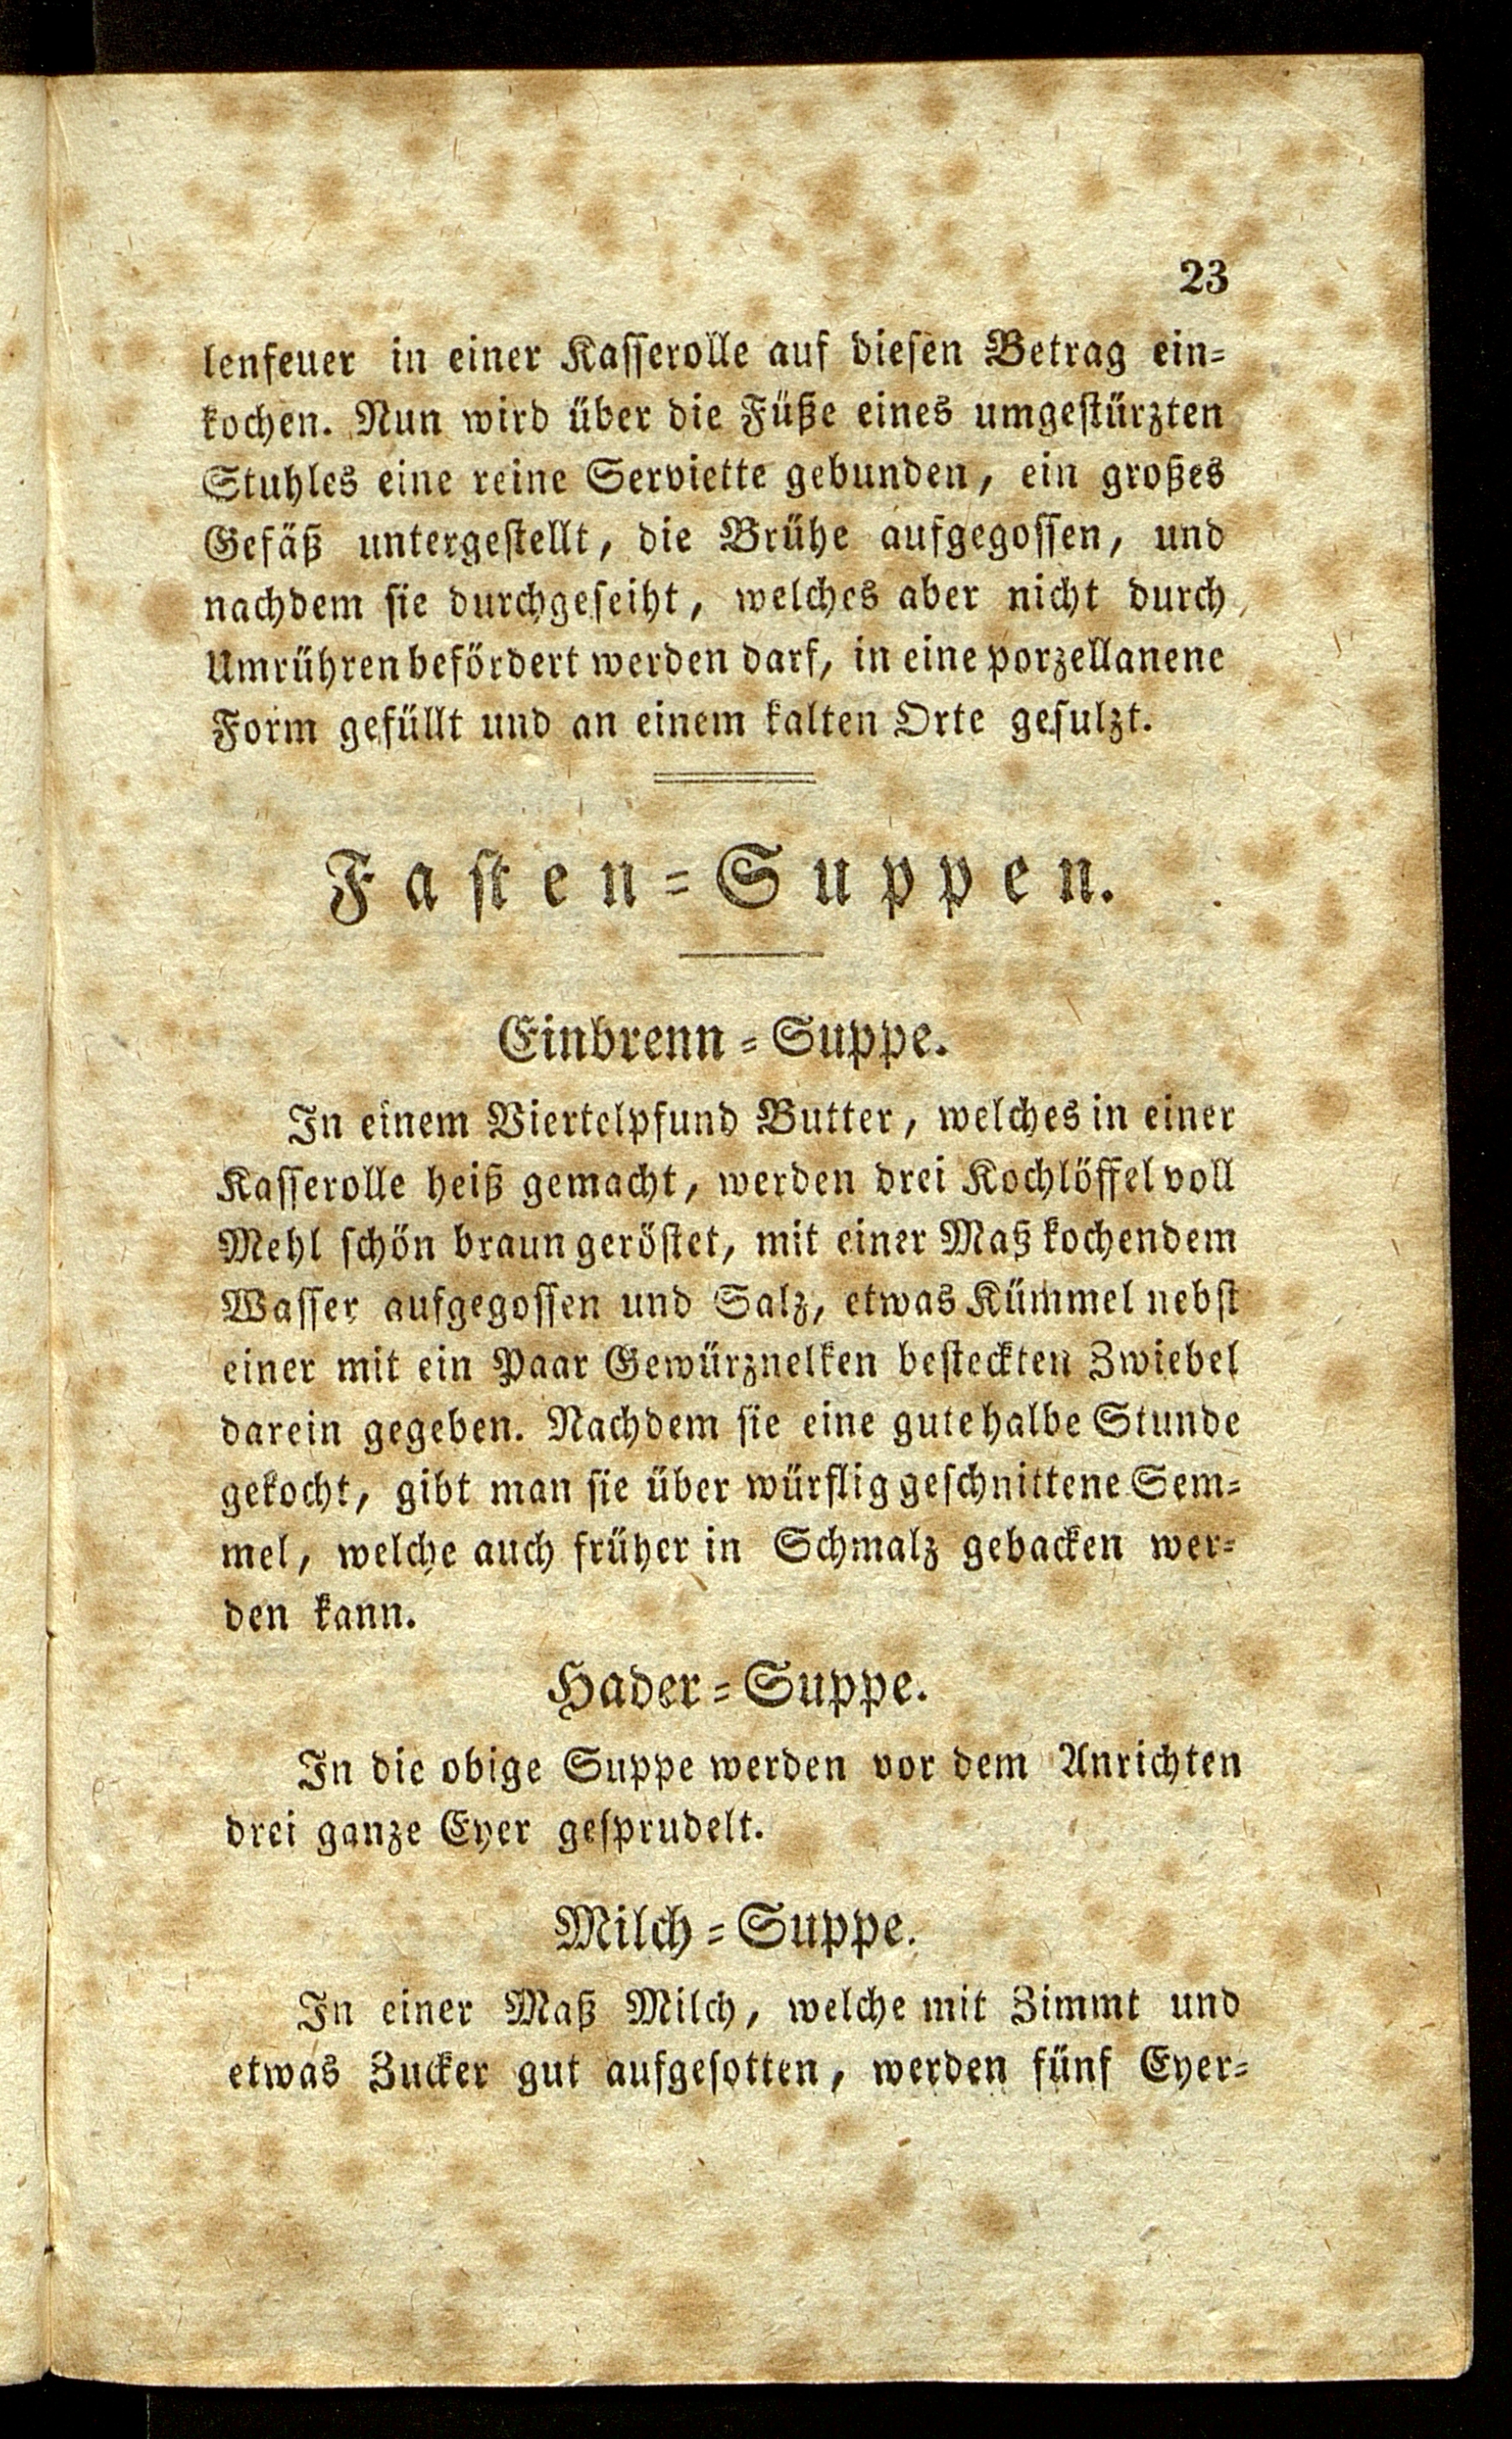 23
lenfeuer in einer Kasserolle auf diesen Betrag ein-
kochen. Nun wird über die Füße eines umgestürzten
Stuhles eine reine Serviette gebunden, ein großes
Gefäß untergestellt, die Brühe aufgegossen, und
nachdem sie durchgeseiht, welches aber nicht durch
Umrühren befördert werden darf, in eine porzellanene
Form gefüllt und an einem kalten Orte gesulzt.
Fasten-Suppen.
Einbrenn-Suppe.
In einem Viertelpfund Butter, welches in einer
Kasserolle heiß gemacht, werden drei Kochlöffel voll
Mehl schön braun geröstet, mit einer Maß kochendem
Wasser aufgegossen und Salz, etwas Kümmel nebst
einer mit ein Paar Gewürznelken besteckten Zwiebel
darein gegeben. Nachdem sie eine gute halbe Stunde
gekocht, gibt man sie über würflig geschnittene Sem-
mel, welche auch früher in Schmalz gebacken wer-
den kann.
Hader-Suppe.
In die obige Suppe werden vor dem Anrichten
drei ganze Eyer gesprudelt.
Milch-Suppe.
In einer Maß Milch, welche mit Zimmt und
etwas Zucker gut aufgesotten, werden fünf Eyer-